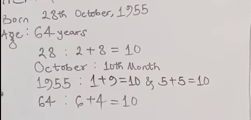 Born 28th October, 1955
Age : 64 years
28 : 2+8 = 10
October : 10th Month
1955 : 1+9=10 & 5+5=10
64 : 6+4=10